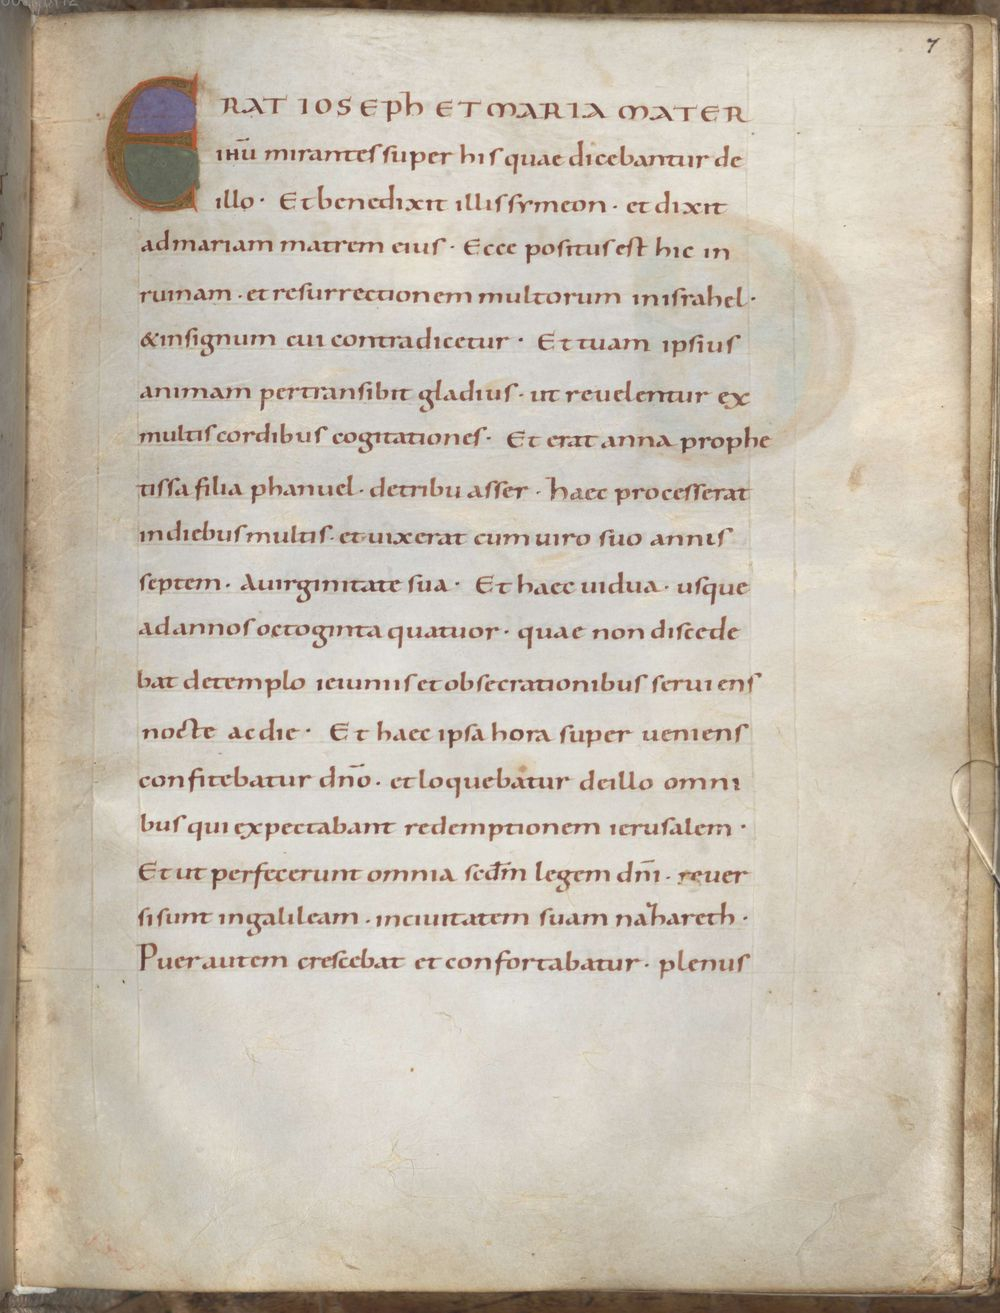 7
ERAT IOSEPh ET MARIA MATER
ihū mirantes super his quae dicebantur de
illo · Et benedixit illis symeon · et dixit
ad mariam matrem eius · Ecce positus est hic in
ruinam · et resurrectionem multorum in israhel ·
& in signum cui contradicetur · Et tuam ipsius
animam pertransibit gladius · ut revelentur ex
multis cordibus cogitationes · Et erat anna prophe
tissa filia phanuel · de tribu asser · haec processerat
in diebus multis · et vixerat cum viro suo annis
septem · A virginitate sua · Et haec vidua · usque
ad annos octoginta quatuor · quae non discede
bat de templo ieiuniis et obsecrationibus serviens
nocte ac die · Et haec ipsa hora super veniens
confitebatur dño · et loquebatur de illo omni
bus qui expectabant redemptionem ierusalem ·
Et ut perfecerunt omnia scđm legem dñi · rever
si sunt in galileam · in civitatem suam nazhareth ·
Puer autem crescebat et confortabatur · plenus